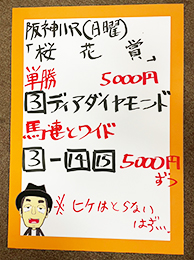 阪神11R(日曜)
「桜花賞」
単勝 5000円
3 ディアダイヤモンド
馬連とワイド
3-14 15 5000円
ずつ
※ヒケはとらない
はずぃ…